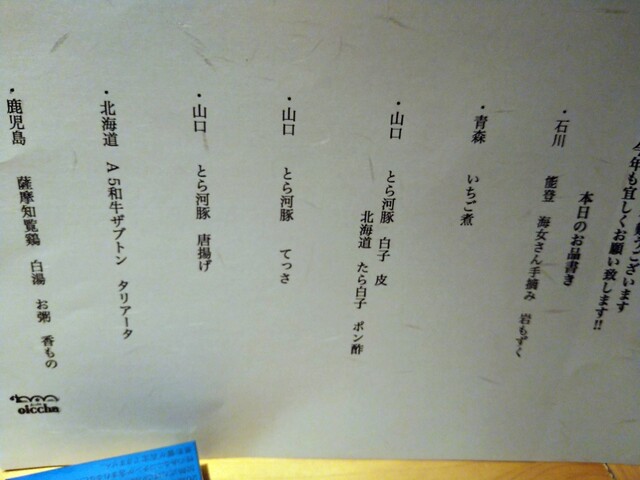 うございます
今年も宜しくお願い致します!!
本日のお品書き
・石川 能登 海女さん手摘み 岩もずく
・青森 いちご煮
・山口 とら河豚 白子 皮
北海道 たら白子 ポン酢
・山口 とら河豚 てっさ
・山口 とら河豚 唐揚げ
・北海道 A5和牛ザブトン タリアータ
・鹿児島 薩摩知覧鶏 白湯 お粥 香もの
oiccha